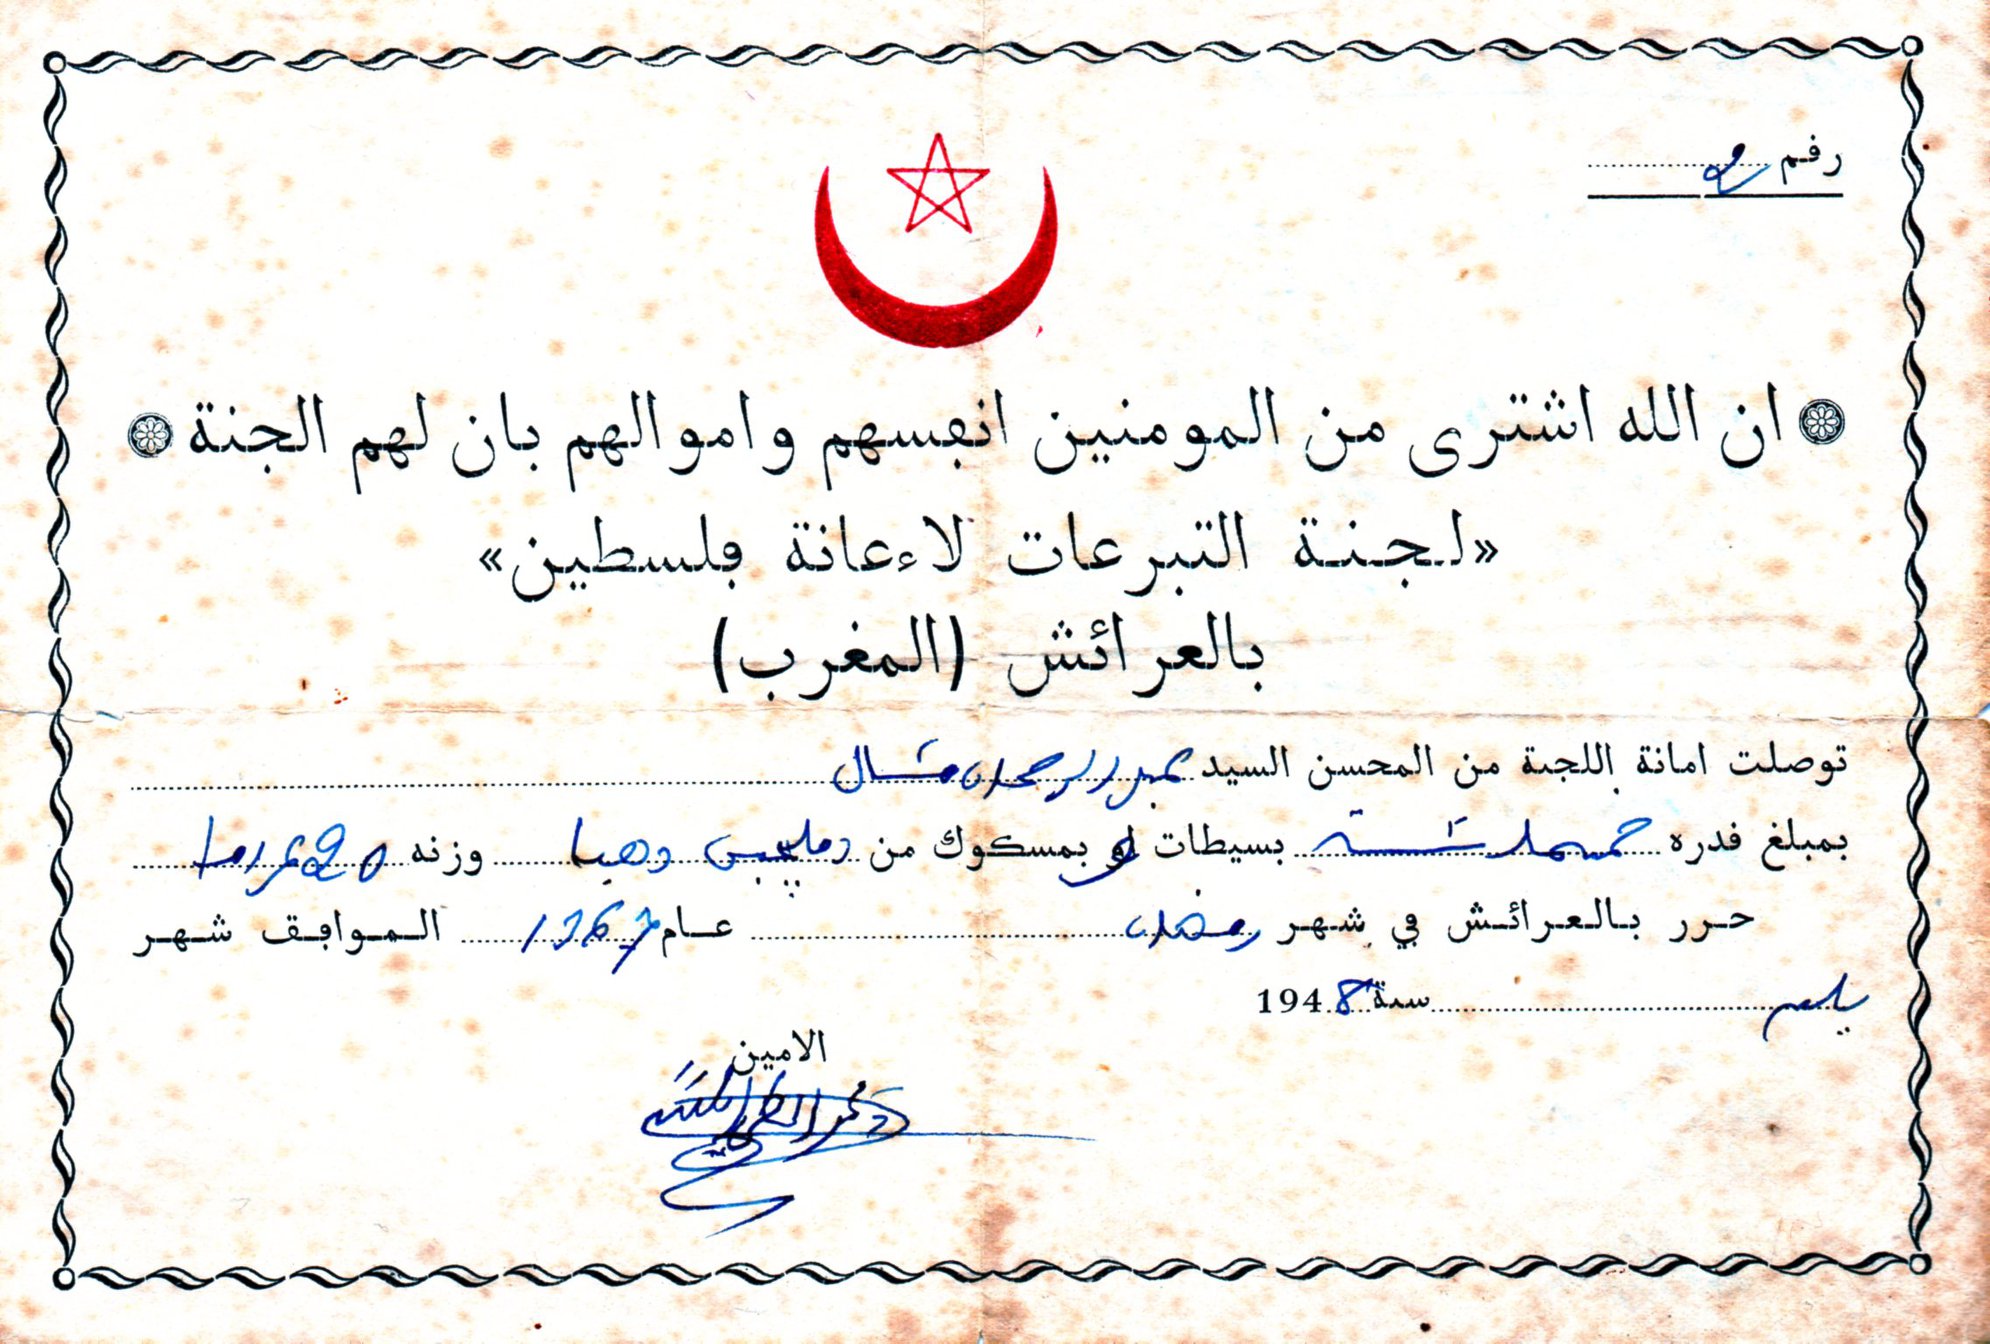 رفم و
ان الله اشترى من المومنين انڢسهم واموالهم بان لهم الجنة
«لجنة التبرعات لاءعانة ڢلسطين»
بالعرائش (المغرب)
توصلت امانة اللجنة من المحسن السيد عبد الرحمان مشال
بمبلغ فدره خمسماية بسيطات او بمسكوك من دمليجين ذهبا وزنه
حرر بالعرائش في شهر رمضان عام 1367 الموافق شهر
سنة 1948
الامين